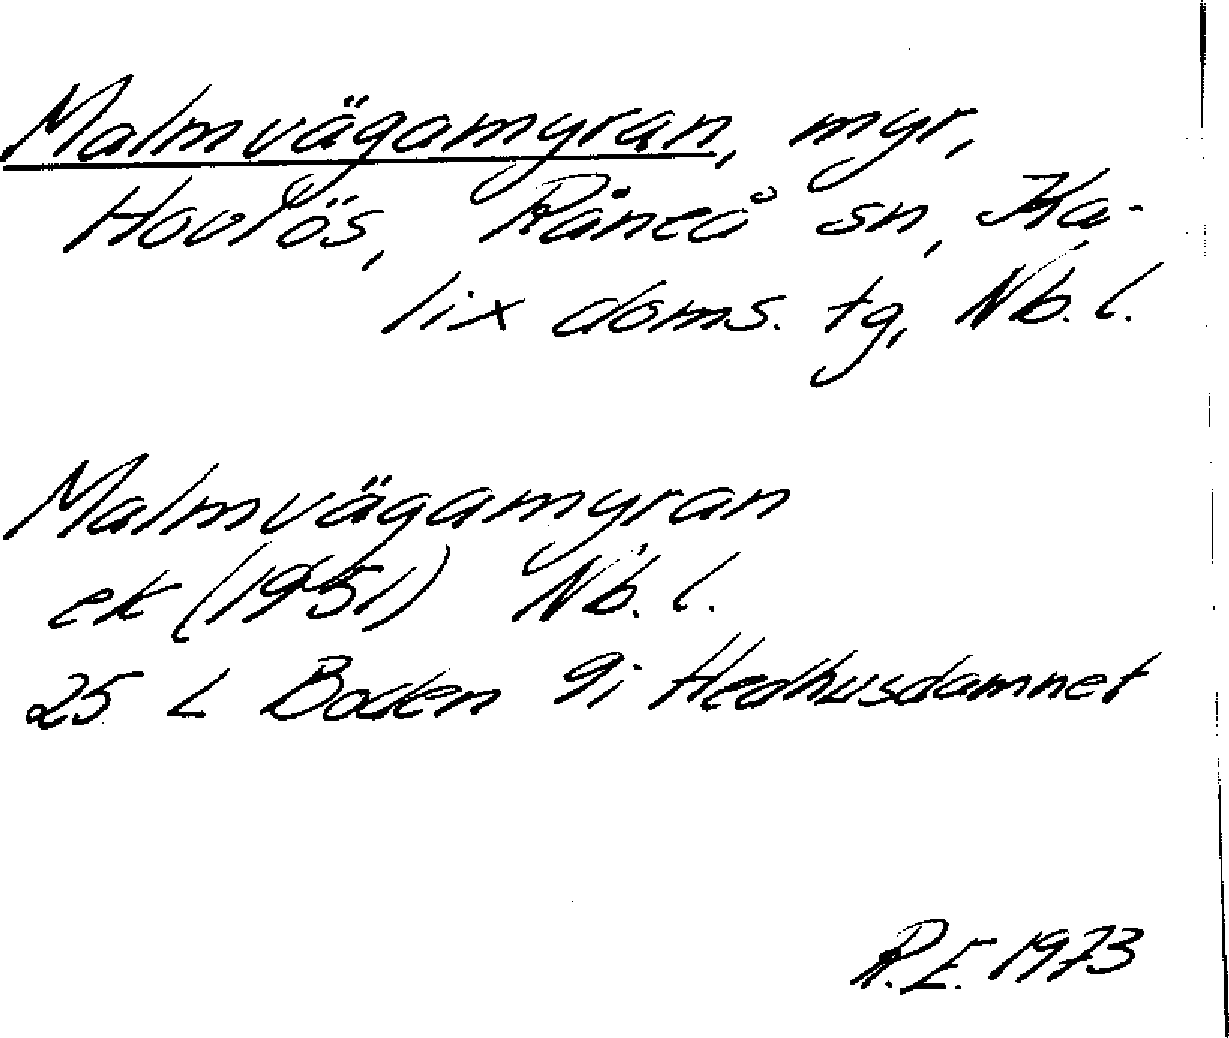 Malmvägamyran, myr,
Hovlös, Råneå sn, Ka-
lix doms. tg, Nb. l.
Malmvägamyran
ek (1951) Nb. l.
25 L Boden 9i Hedhusdamnet
R.E. 1973